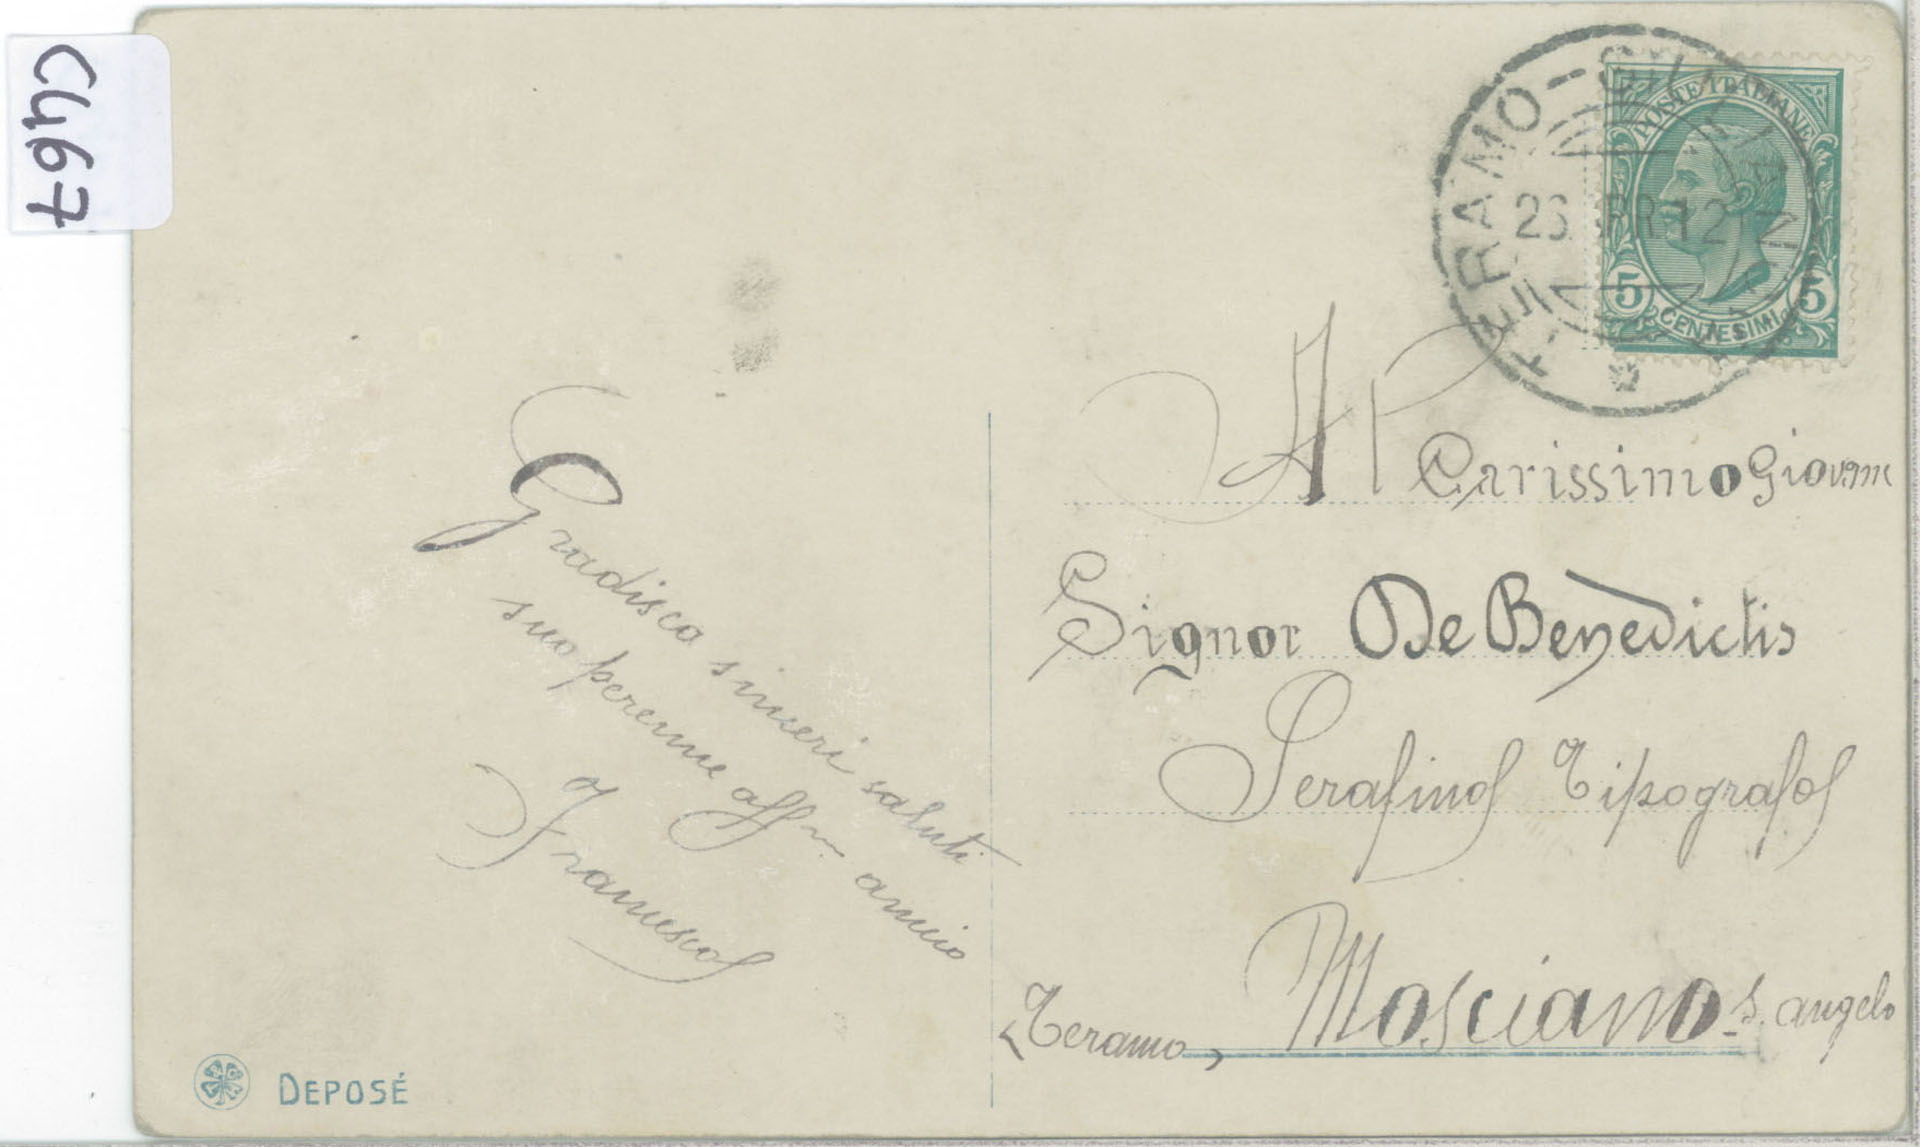 C467
TERAMO
26 APR 12
POSTE ITALIANE
5 CENTESIMI 5
Al Carissimo Giovane
Signor De Benedictis
Serafino Tipografo
Mosciano S. angelo
Teramo,
Gradisca sinceri saluti
suo perenne affmo amico
Francesco
DEPOSÉ